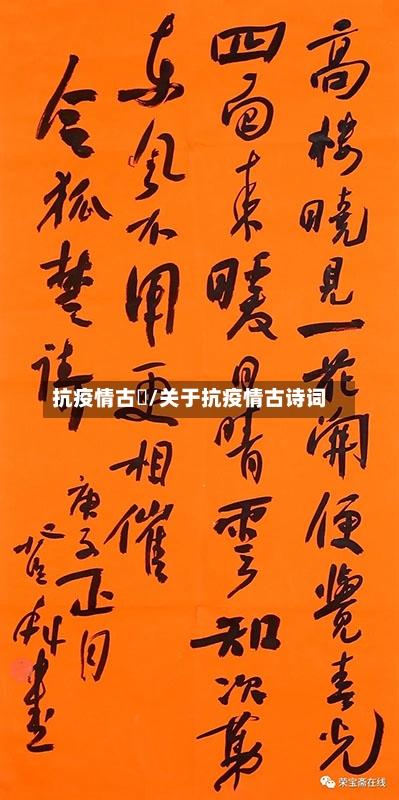 高樓曉見一花開便覺春光
四面来暖日晴雲知次第
东风不用更相催
令狐楚诗
庚子正月
抗疫情古�/关于抗疫情古诗词
荣宝斋在线